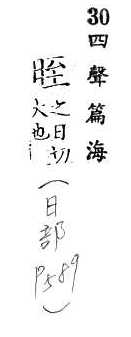 30四聲篇海
晊
之日切
大也
(日部
P589)